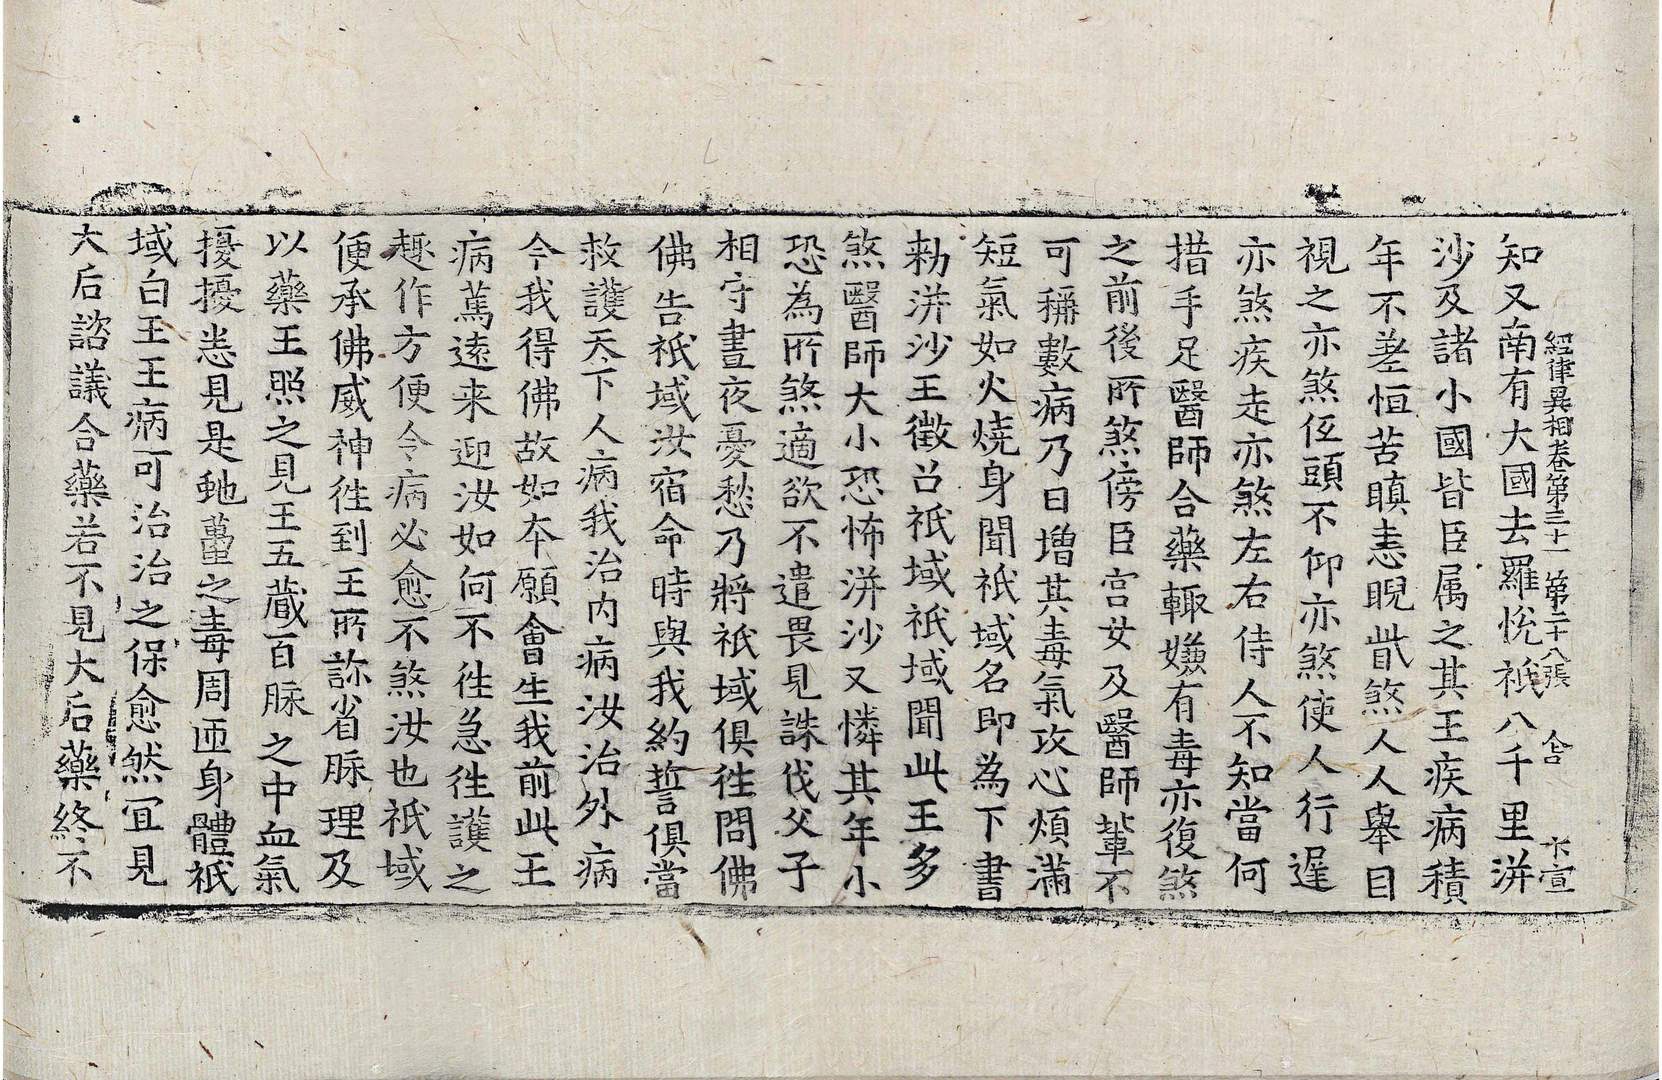 經律異相卷第三十一 第二十八張 合 卞宣
知又南有大國去羅悅祇八千里洴
沙及諸小國皆臣属之其王疾病積
年不差恒苦瞋恚睨眥煞人人舉目
視之亦煞伍頭不仰亦煞使人行遲
亦煞疾走亦煞左右侍人不知當何
措手足醫師合藥輙嫌有毒亦復煞
之前後所煞傍臣宮女及醫師輩不
可稱數病乃日增其毒氣攻心煩滿
短氣如火燒身聞祇域名即為下書
勑洴沙王徵召祇域祇域聞此王多
煞醫師大小恐怖洴沙又憐其年小
恐為所煞適欲不遣畏見誅伐父子
相守晝夜憂愁乃將祇域俱徃問佛
佛告祇域汝宿命時與我約誓俱當
救護天下人病我治内病汝治外病
今我得佛故如本願會生我前此王
病篤遠来迎汝如何不徃急徃護之
趣作方便令病必愈不煞汝也祇域
便承佛威神徃到王所診省脉理及
以藥王照之見王五藏百脉之中血氣
擾擾恚見是虵蠆之毒周匝身體祇
域白王王病可治治之保愈然宜見
大后諮議合藥若不見大后藥終不